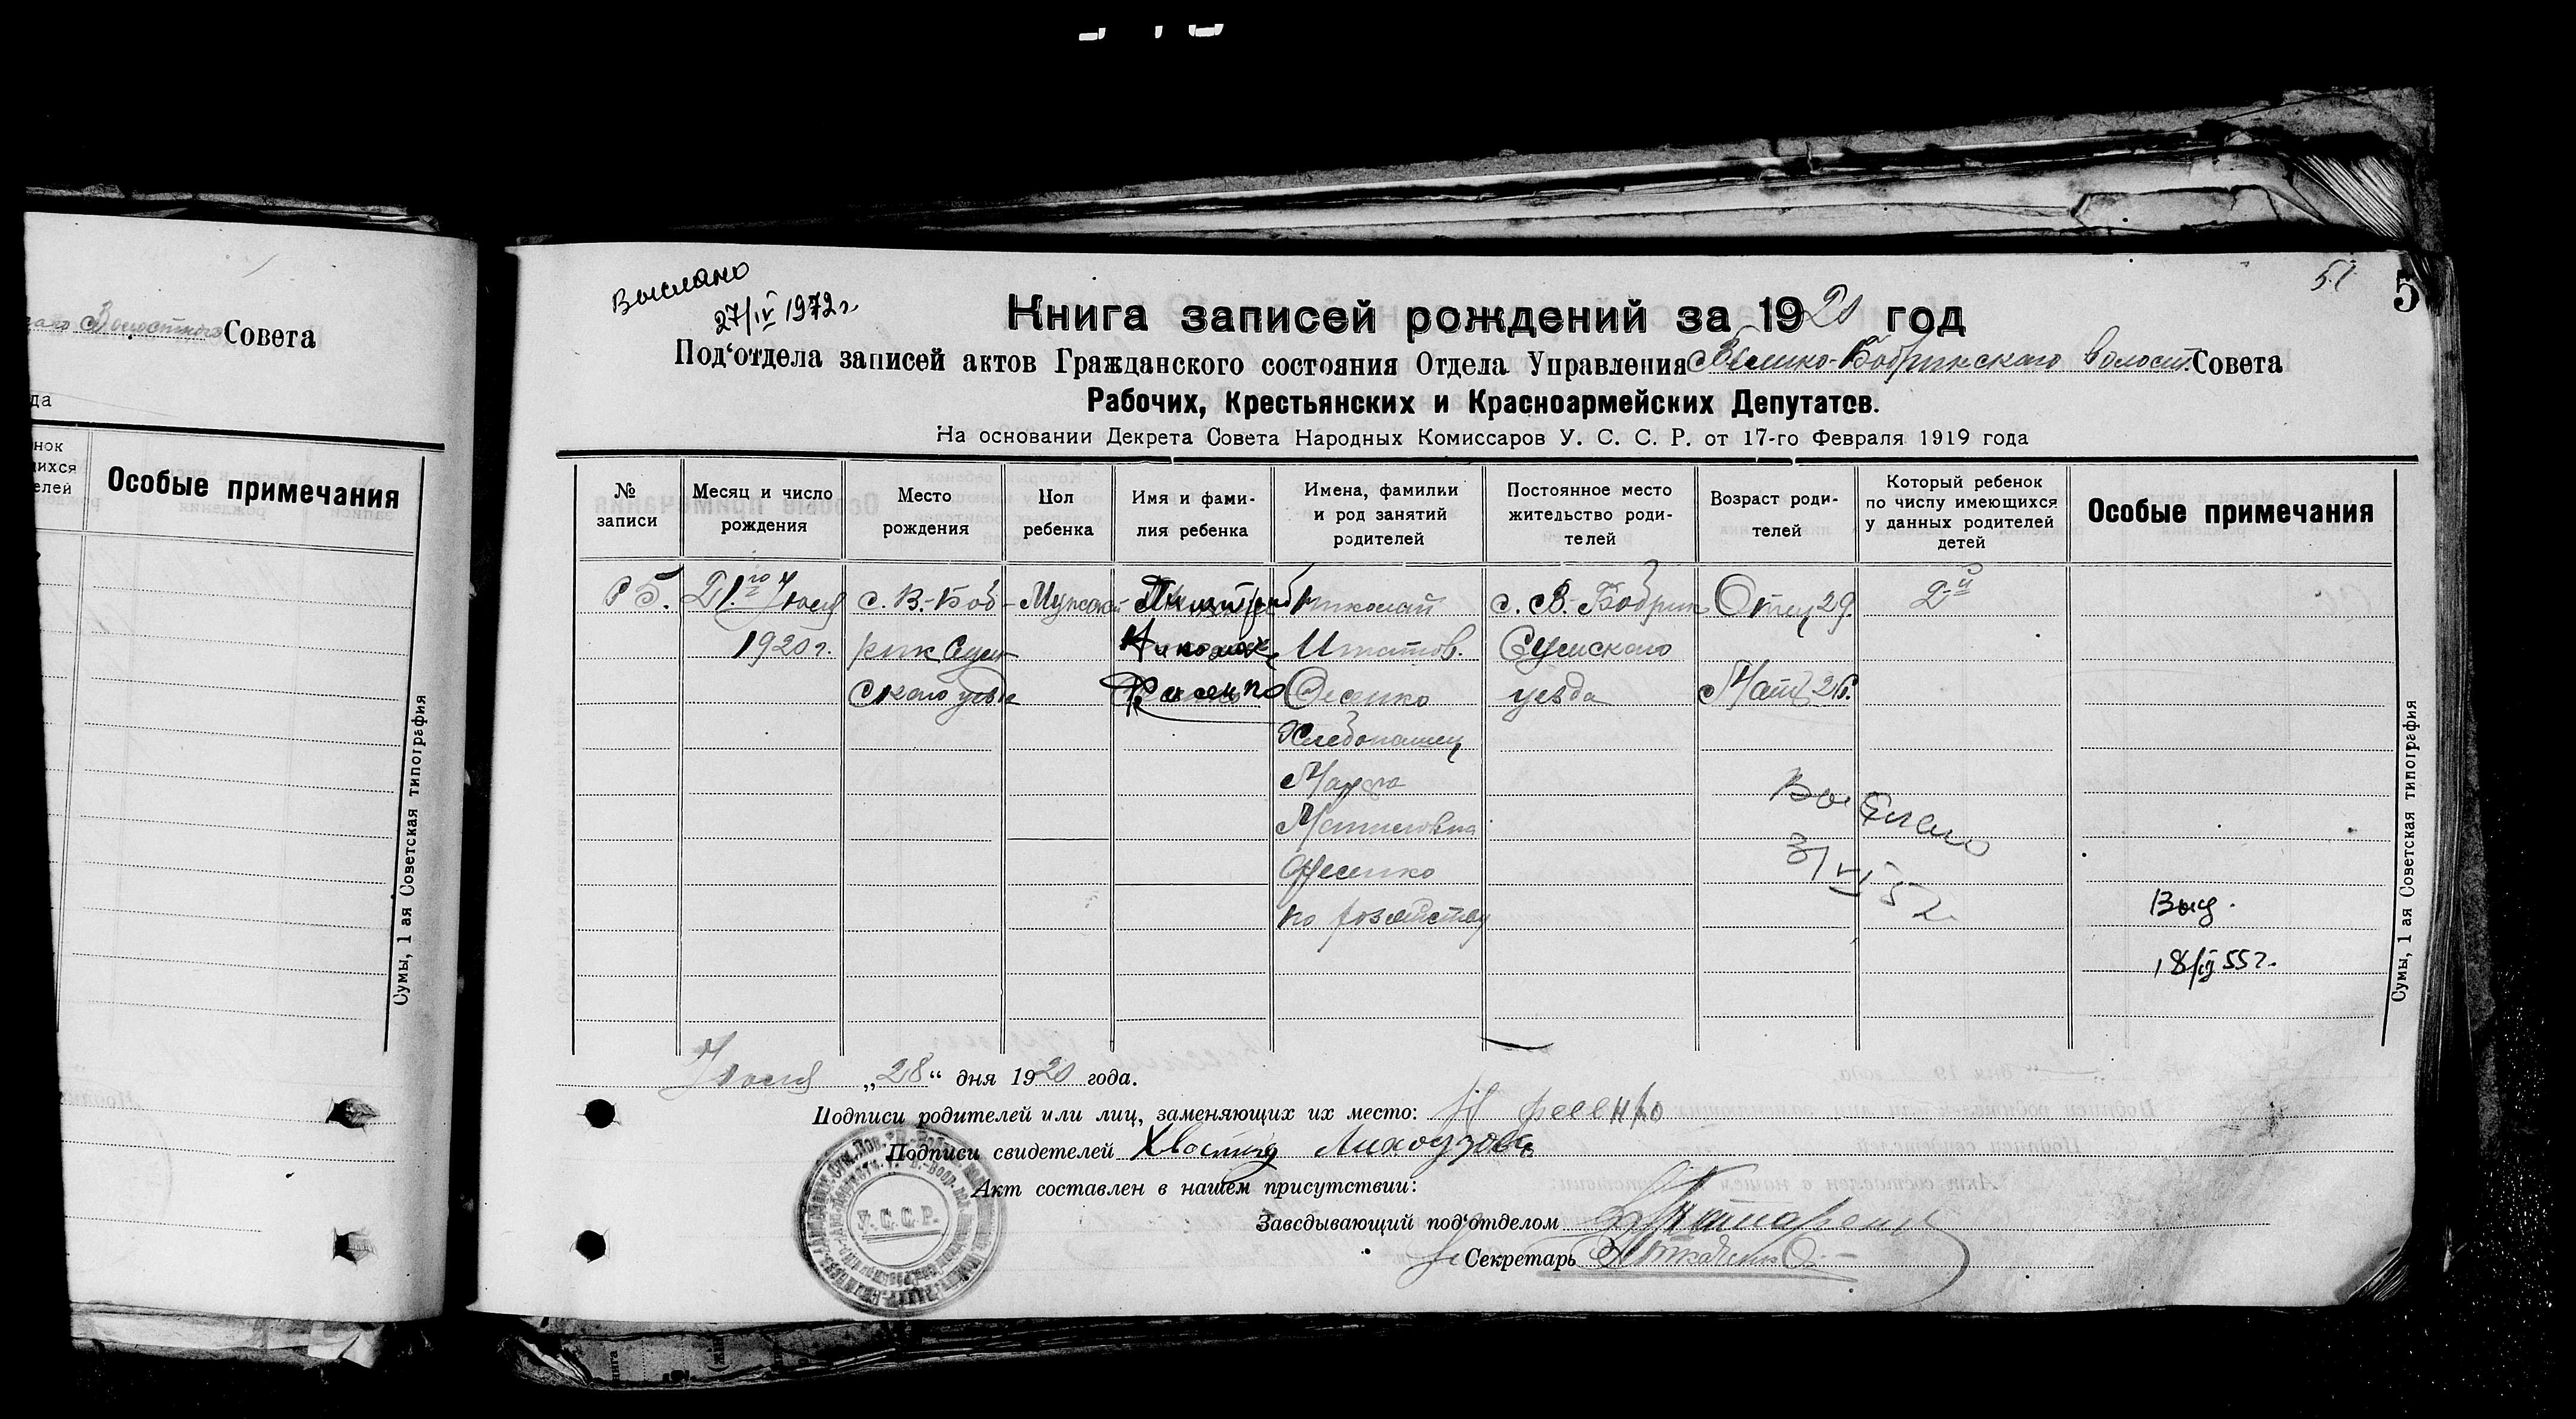 Выслано
27/IV 1972 г.
51
5
Книга записей рождений за 1920 год
Под‘отдела записей актов Гражданского состояния Отдела Управления Велико-Бобрикскаго Волост. Совета
Рабочих, Крестьянских и Красноармейских Депутатов.
На основании Декрета Совета Народных Комиссаров У. С. С. Р. от 17-го Февраля 1919 года
№ записи
Месяц и число рождения
Место рождения
Пол ребенка
Имя и фами-
лия ребенка
Имена, фамилии
и род занятий
родителей
Постоянное место
жительство роди-
телей
Возраст роди-
телей
Который ребенок
по числу имеющихся
у данных родителей
детей
Особые примечания
21го Июля
1920 г.
с. В.-Боб-
рик Сум-
скаго уезда
Мужской
Фесенко
Николай
Игнатов.
Фесенко
Хлебопашец
Марфа
Фесенко
по хозяйству
с. В.-Бобрик
Сумскаго
уезда
Отец 29.
Мать 26.
2й
Выслано
3/VI 52
Выд.
18/IV 55 г.
Июля „28“ дня 1920 года.
Подписи родителей или лиц, заменяющих их место: Н Фесенко
Подписи свидетелей
Акт составлен в нашем присутствии:
Заведывающий под‘отделом
Секретарь
У.С.С.Р.
Сумы, 1 ая Советская типография
Волостного Совета
да
нок
щихся
елей
Особые примечания
Сумы, 1 ая Советская типография